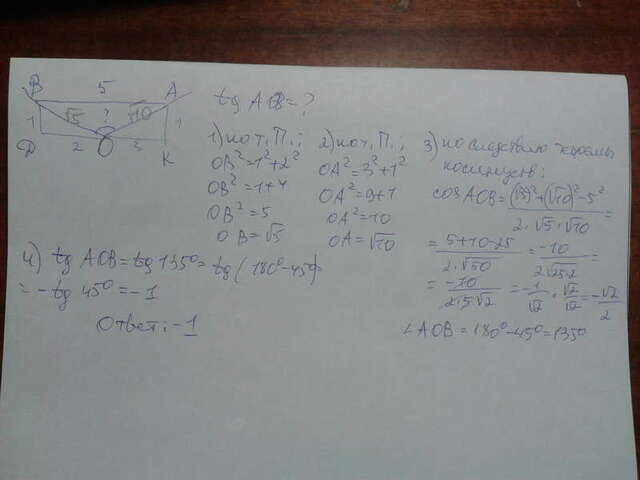 B 5 A
1 √5 ? √10 1
D 2 O 3 K
tg AOB = ?
1) по т. П.;
OB² = 1² + 2²
OB² = 1 + 4
OB² = 5
OB = √5
2) по т. П.;
OA² = 3² + 1²
OA² = 9 + 1
OA² = 10
OA = √10
3) по следствию теоремы
косинусов:
cos AOB = ((√5)² + (√10)² - 5²) / (2 · √5 · √10) =
= (5 + 10 - 25) / (2√50) = -10 / (2√25·2) =
= -10 / (2·5√2) = -1/√2 · √2/√2 = -√2/2
∠AOB = 180° - 45° = 135°
4) tg AOB = tg 135° = tg (180° - 45°) =
= - tg 45° = -1
Ответ: -1